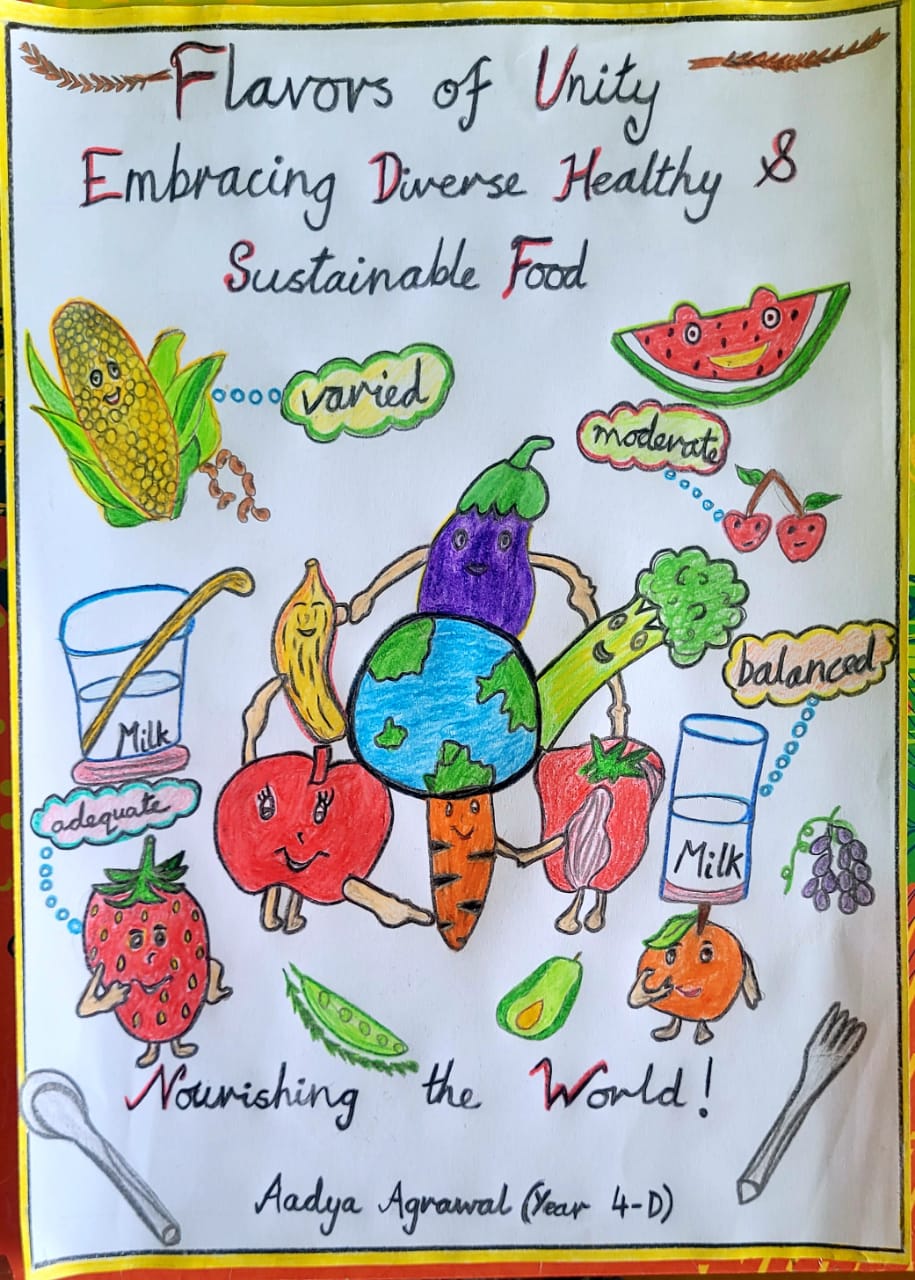 Flavors of Unity
Embracing Diverse Healthy &
Sustainable Food
varied
moderate
balanced
Milk
adequate
Milk
Nourishing the World!
Aadya Agrawal (Year 4-D)